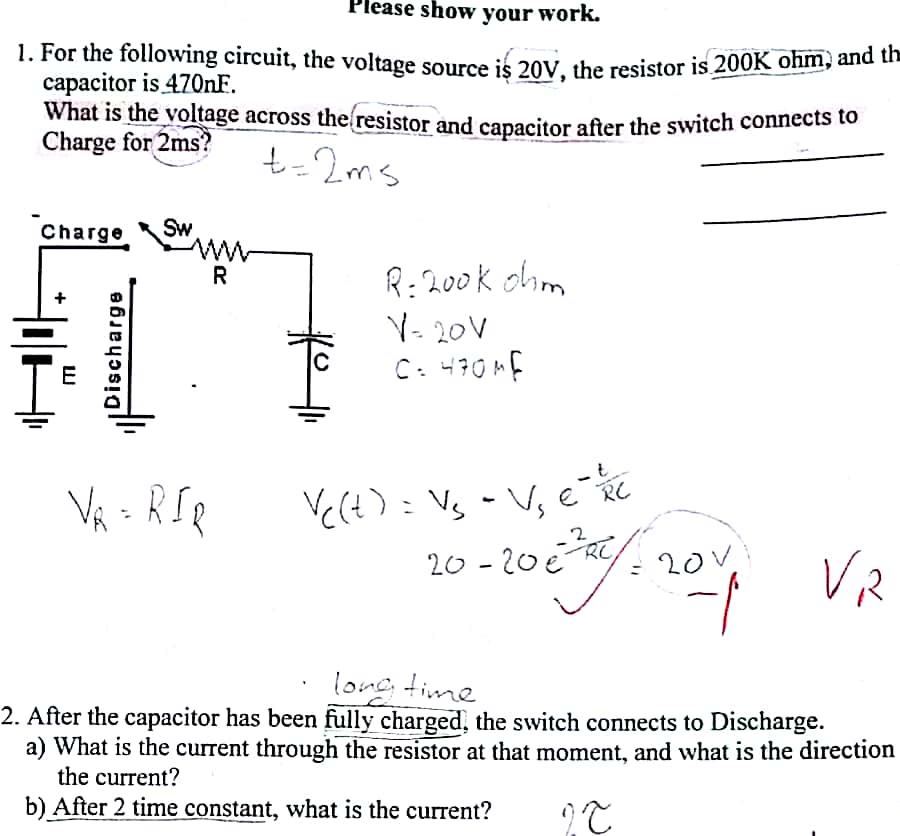 Please show your work.
1. For the following circuit, the voltage source is 20V, the resistor is 200K ohm, and th
capacitor is 470nF.
What is the voltage across the resistor and capacitor after the switch connects to
Charge for 2ms?
t=2ms
Charge
Sw
R
+
Discharge
E
C
R: 200K ohm
V= 20V
C: 470 nF
VR = R IR
Vc(t) = Vs - Vs e^-t/RC
20 - 20 e^-2/RC = 20V
-1
VR
long time
2. After the capacitor has been fully charged, the switch connects to Discharge.
a) What is the current through the resistor at that moment, and what is the direction
the current?
b) After 2 time constant, what is the current?
2τ